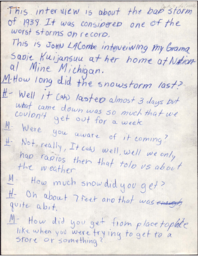 This interview is about the bad storm
of 1939. It was considered one of the
worst storms on record.
This is John LaComb interviewing my Grama
Sadie Kuijansuu at her home at
al Mine Michigan.
M- How long did the snowstorm last?
H- Well it lasted almost 3 days but
what came down was so much that we
couldn't get out for a week.
M Were you aware of it coming?
H- Not really, It was well, well we only
had radios then that told us about
the weather
M- How much snow did you get?
H- Oh about 7 feet and that was
quite abit.
M- How did you get from place to place
like when you were trying to get to a
store or something?